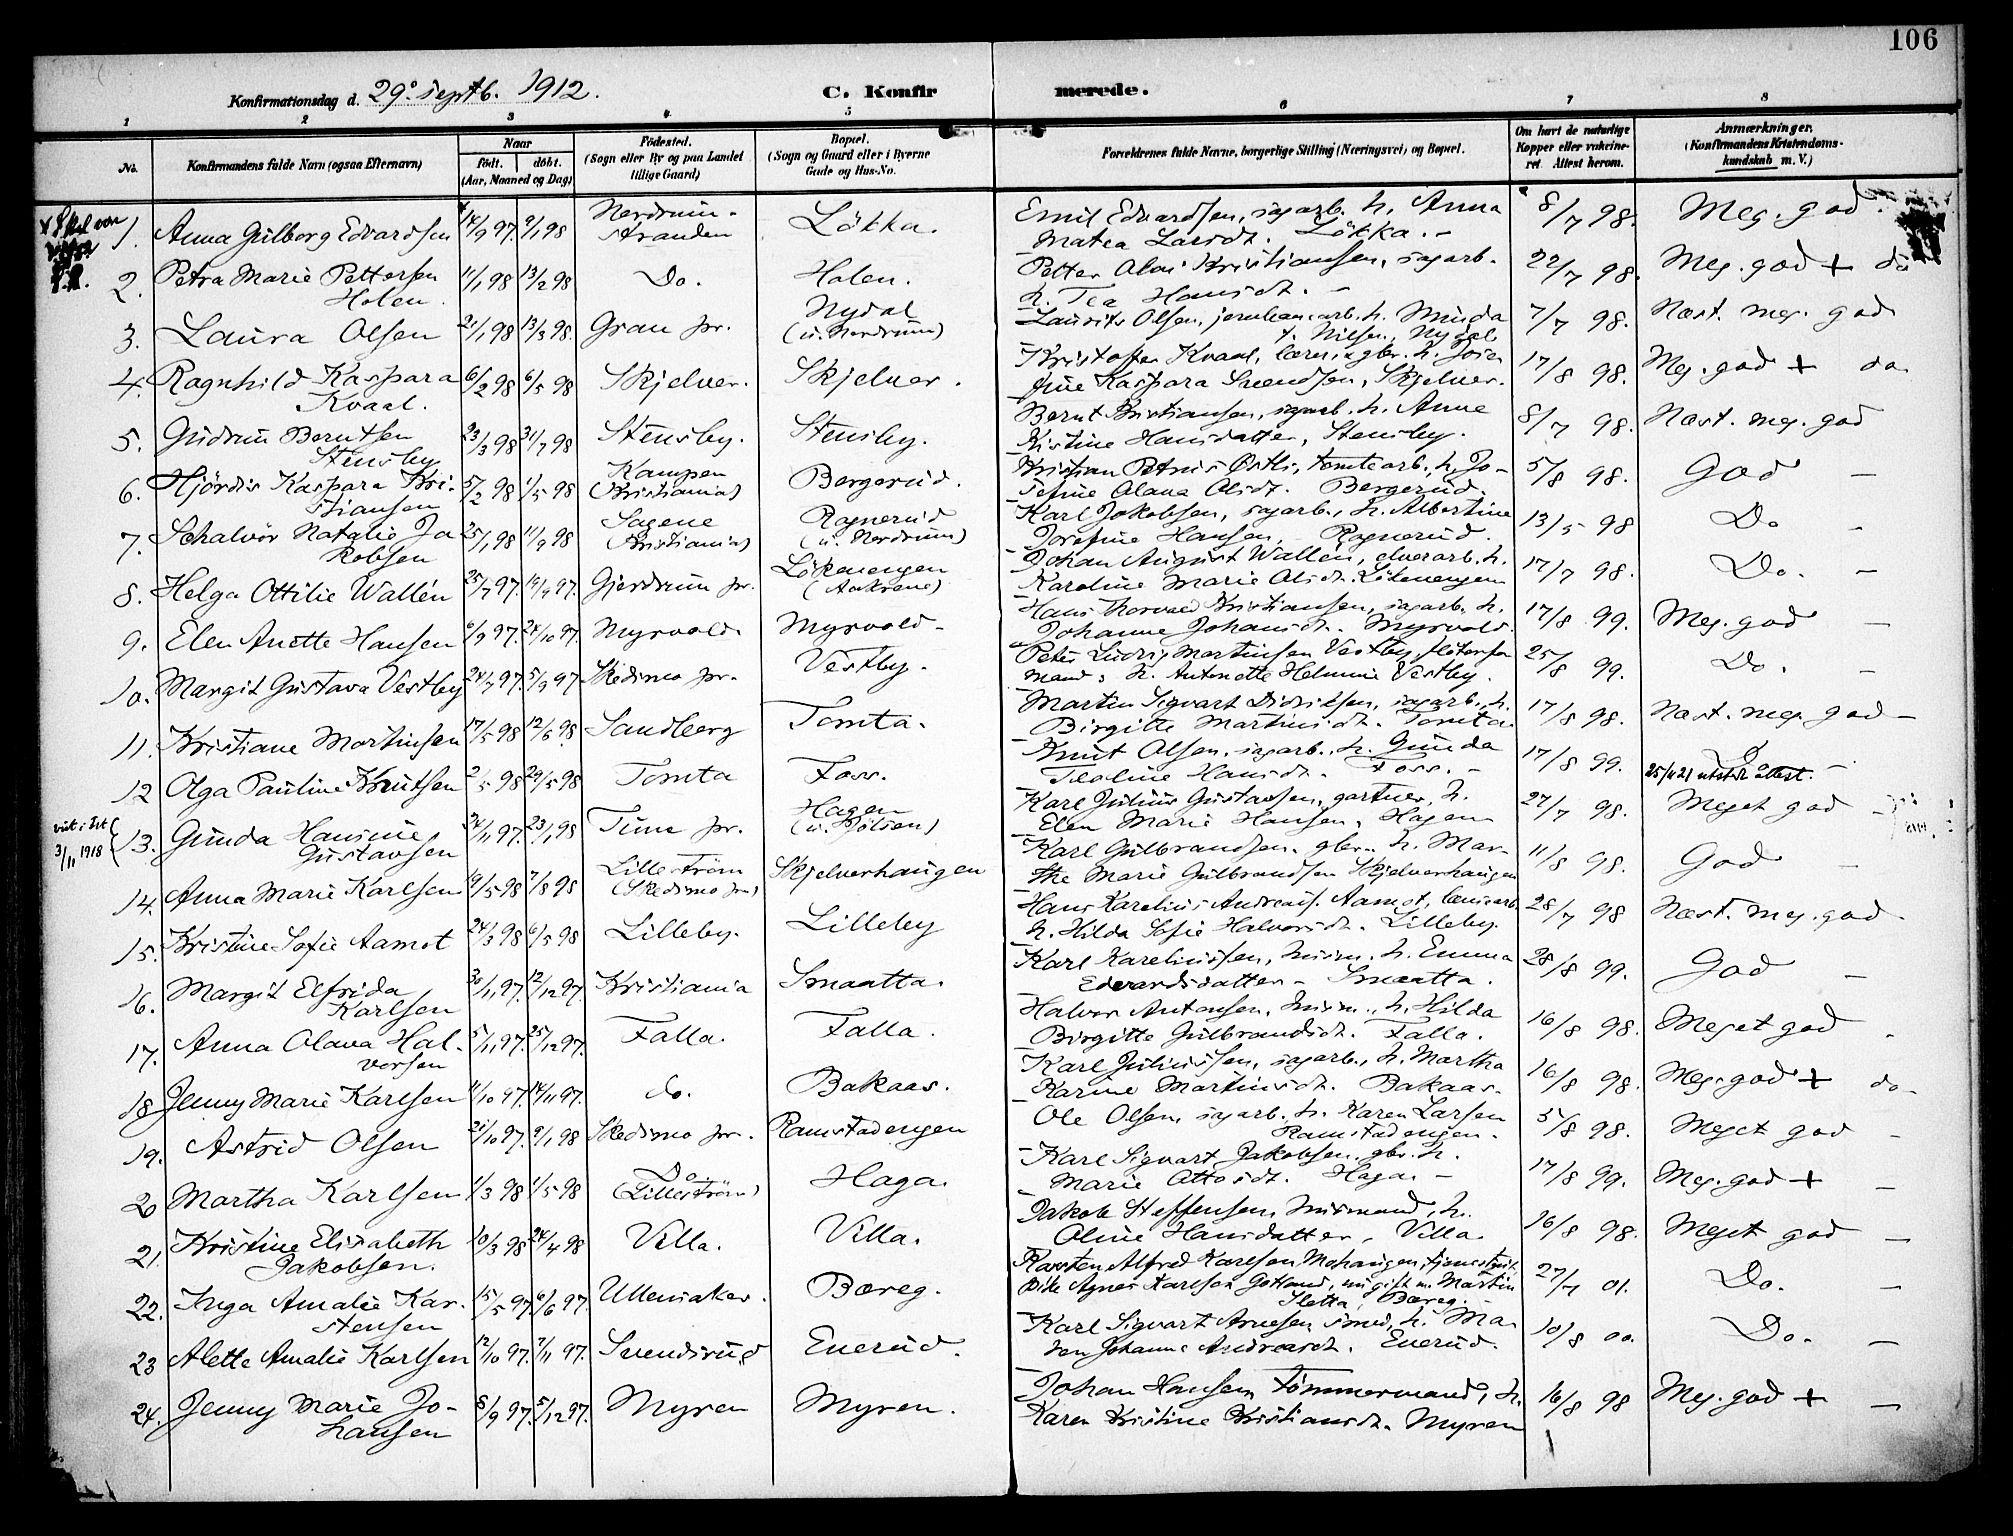 106
Konfirmationsdag d. 29. septb. 1912.
C. Konfirmerede.
1 2 3 4 5 6 7 8
No. Konfirmandens fulde Navn (ogsaa Efternavn) Naar født. døbt. (Aar, Maaned og Dag) Fødested. (Sogn eller By og paa Landet tillige Gaard) Bopæl. (Sogn og Gaard eller i Byerne Gade og Hus-No. Forældrenes fulde Navne, borgerlige Stilling (Næringsvei) og Bopæl. Om havt de naturlige Kopper eller vaccineret. Attest herom. Anmærkninger. (Konfirmandens Kristendomskundskab m. V.)
1. Anna Gulborg Edvardsen 14/9 97. 9/1 98 Nordrum-stranden Løkka. Emil Edvardsen, sagarb. h. Anna
Matea Larsdt. Løkka. 8/7 98. Meg. god.
2. Petra Marie Pettersen Holen. 11/1 98 13/2 98 Do. Holen. Petter Olai Kristiansen, sagarb.
h. Tea Hansdt. 22/7 98. Meg. god + do
3. Laura Olsen 21/1 98 13/3 98. Gran pr. Nydal (u. Nordrum) Laurits Olsen, jernbanearb. h. Minda
Nilsen, Nydal 7/7 98. Næst. meg. god
4. Ragnhild Kaspara Kvaal. 6/2 98 6/5 98 Skjelver. Skjelver. Kristoffer Kvaal, lærer, gbr. h. Josefine Kaspara Svendsen, Skjelver. 17/8 98. Meg. god + do
5. Gudrun Berntsen Stensby 23/3 98 31/7 98 Stensby. Stensby. Bernt Kristiansen, sagarb. h. Anne
Kristine Hansdatter, Stensby. 8/7 98. Næst. meg. god
6. Hjørdis Kaspara Kristiansen 5/2 98 1/5 98 Kampen (Kristiania) Bergerud. Kristian Petrus Østli, tomtearb. h. Josefine Olava Olsdt. Bergerud. 5/8 98. God —
7. Schalvør Natalie Jakobsen 25/1 98 11/9 98 Sagene (Kristiania) Ragnerud (u. Nordrum) Karl Jokobsen, sagarb., h. Albertine
Josefine Hansen, Ragnerud. 13/5 98 Do —
8. Helga Ottilie Wallén 25/7 97. 19/9 97. Gjerdrum pr. Løkenengen (Aakrene) Johan August Wallén, elverarb. h.
Karoline Marie Olsdt. Løkenengen 17/7 98. Do. —
9. Elen Anette Hansen 6/9 97. 24/10 97. Myrvold. Myrvold. Hans Thorvald Kristiansen, sagarb. h.
Johanne Johansdt. Myrvold. 17/8 99. Meg. god —
10. Margit Gustava Vestby 24/7 97. 5/9 97 Skedsmo pr. Vestby. Peter Ludvig Martinsen Vestby, fløterformand, h. Antonette Helmine Vestby. 25/8 99. Do. —
11. Kristiane Martinsen 17/5 98 12/6 98. Sandberg Tomta. Martin Sigvart Didriksen, sagarb. h.
Birgitte Martinusdt. Tomta. 17/8 98. Næst. meg. god —
12 Olga Pauline Knutsen 2/5 98 29/5 98 Tomta Foss. Knut Olsen, sagarb., h. Gunda
Teoline Hansdt. Foss. — 17/8 99. Do — 25/4 21 utstdt attest.
13. Gunda Hansine Gustavsen 30/11 97. 23/1 98 Tune pr. Hagen Karl Julius Gustavsen, gartner, h.
Elen Marie Hansen, Hagen 27/7 98. Meget god —
3/11 1918
14. Anna Marie Karlsen 19/5 98 7/8 98 Lillestrøm (Skedsmo pr.) Skjelverhaugen Karl Gulbrandsen, gbr. h. Marthe Marie Gulbrandsen Skjelverhaugen 11/8 98. God —
15. Kristine Sofie Aamot 24/3 98 6/5 98 Lilleby. Lilleby Hans Karelius Andreas. Aamot,
h. Hilda Sofie Halvorsdt. Lilleby. 28/7 98 Næst. meg. god
16. Margit Elfrida Karlsen 30/11 97. 12/12 97. Kristiania Smaatta. Karl Kareliussen, murm. h. Emma
Edvardsdatter — Smaatta. 28/8 99. God —
17. Anna Olava Halvorsen 5/11 97. 25/12 97. Falla. Falla. Halvor Antonsen, murm., h. Hilda
Birgitte Gulbrandsdt. Falla. 16/8 98. Meget god
18. Jenny Marie Karlsen 11/10 97. 14/11 97. do. Bakaas. Karl Juliussen, sagarb., h. Martha
Karine Martinsdt. Bakaas. 16/8 98. Meg. god + do
19. Astrid Olsen 21/10 97. 9/1 98 Skedsmo pr. Ramstadengen Ole Olsen, sagarb. h. Karen Larsen
Ramstadengen. 5/8 98. Meget god —
20 Martha Karlsen 1/3 98 1/5 98 Do (Lillestrøm) Haga. Karl Sigvart Jakobsen, gbr. h.
Marie Ottosdt. Haga. — 17/8 99. Meg. god + —
21. Kristine Elisabeth Jakobsen. 10/3 98 24/4 98 Villa. Villa. Jakob Steffensen, murmand, h.
Oline Hansdatter, Villa. 16/8 98. Meget god —
22. Inga Amalie Karstensen 15/5 97. 6/6 97. Ullensaker. Bæreg. Karsten Alfred Karlsen Mohaugen,
Pike Agnes Karlsen Gotland, nu gift m. Martin
Sletta, Bæreg. 27/7 01. Do. —
23 Alette Amalie Karlsen 12/10 97. 7/11 97. Svendsrud Enerud. Karl Sigvart Arnesen, smed, h. Maren Johanne Andreasdt. Enerud. 10/8 00. Do. —
24. Jenny Marie Johansen 8/9 97. 5/12 97. Myren Myren. Johan Hansen, Tømmermand, h.
Karen Kristine Kristiansdt. Myren 16/8 98 Meg. god + —